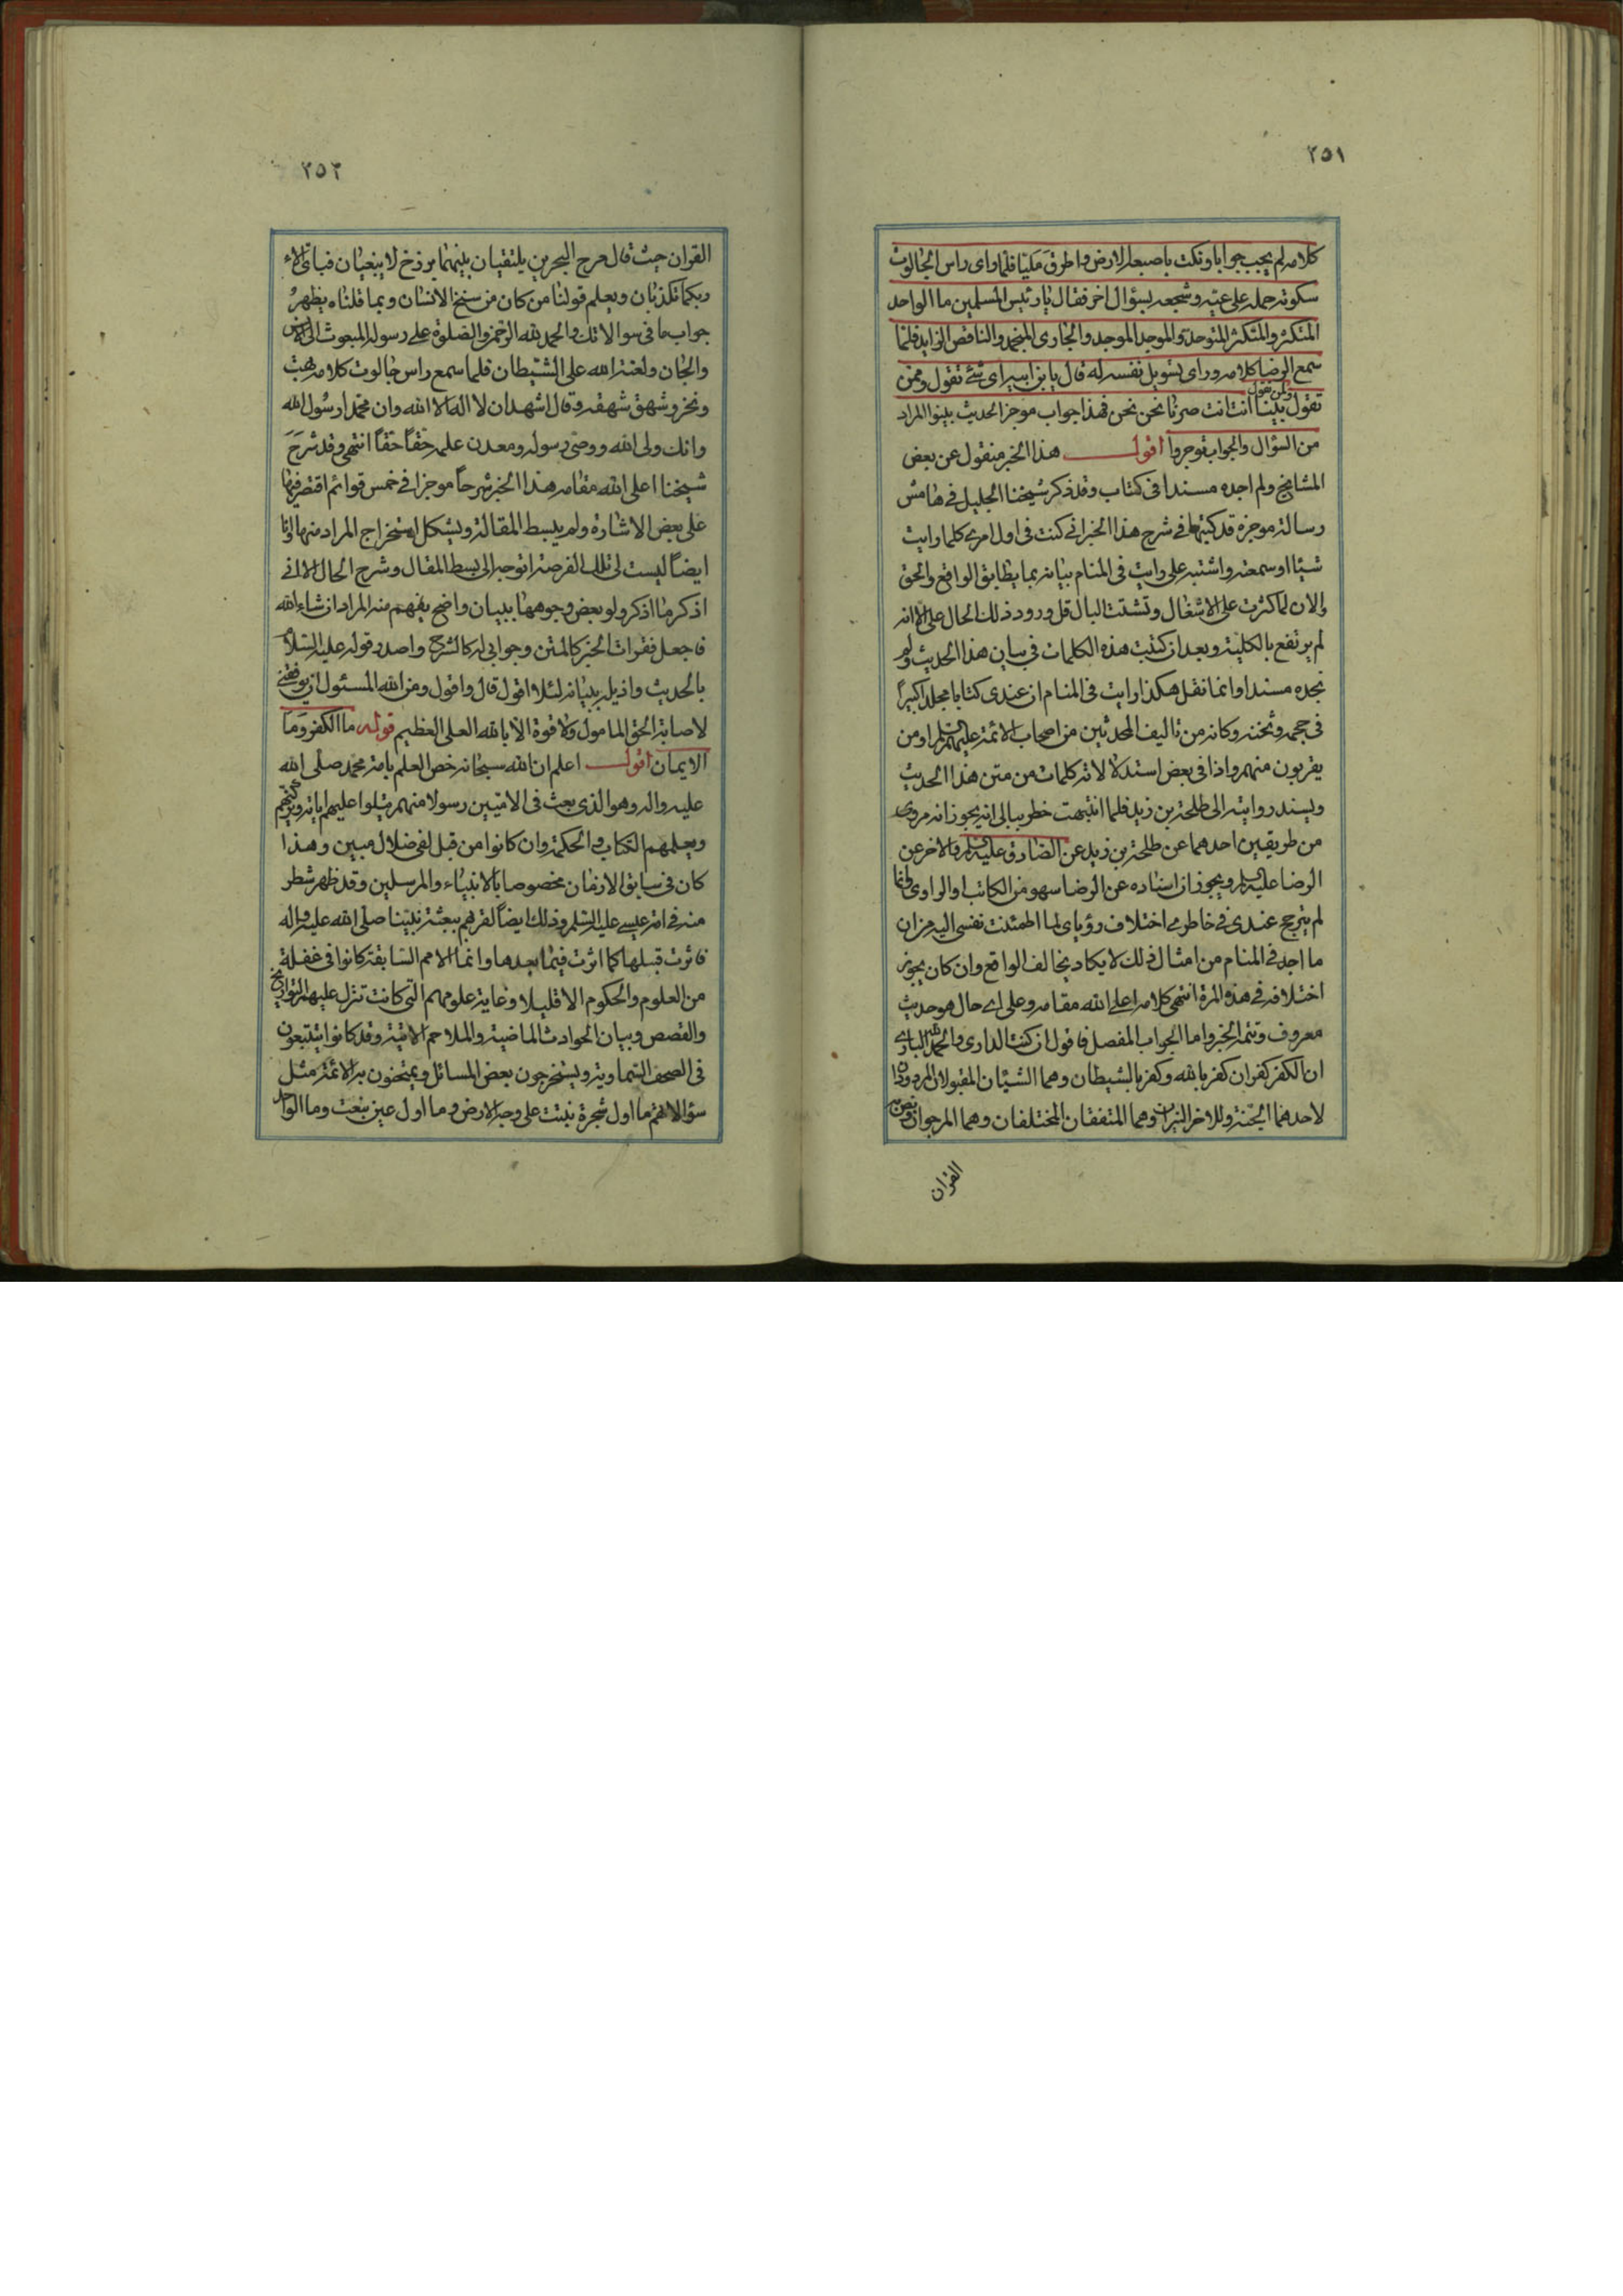 ٢٥١
كلامه لم يجب جوابا ونكت باصبعه الارض واطرق مليّا فلما راى راس الجالوت
سكوته حمله على عيّه وشجعه بسؤال اخر فقال يا رئيس المسلمين ما الواحد
المتكثر والمتكثر المتوحد والموجد الموجد والجارى المنجمد والناقص الزايد فلما
سمع الرضا كلامه وراى تسويل نفسه له قال يابن ابيه اى شئ تقول وممن
تقول ولمن تقول بينا انت انت صرنا نحن نحن فهذا جواب موجز الحديث بينوا المراد
من السؤال والجواب توجروا اقول هذا الخبر منقول عن بعض
المشايخ ولم اجده مسندا فى كتاب وقد ذكر شيخنا الجليل فى هامش
رسالة موجزة قد كتبها فى شرح هذا الخبر انى كنت فى اول امرى كلما رايت
شيئا او سمعته واشتبه على رايت فى المنام بيانه بما يطابق الواقع والحق
والان لما كثرت على الاشغال وتشتت البال قل ورود ذلك الحال على الا انه
لم يرتفع بالكلية وبعد ان كتبت هذه الكلمات فى بيان هذا الحديث ولم
نجده مسندا وانما نقل هكذا رايت فى المنام ان عندى كتابا مجلدا كبيرًا
فى حجمه وثخنه وكانه من تاليف المحدثين من اصحاب الائمة عليهم السلم او من
يقربون منهم واذا فى بعض استدلالاته كلمات من متن هذا الحديث
ويسند روايته الى طلحة بن زيد فلما انتبهت خطر ببالى انه يجوز انه مروى
من طريقين احدهما عن طلحة بن زيد عن الصادق عليه السلم والاخر عن
الرضا عليه السلم ويجوز ان اسناده عن الرضا سهو من الكاتب او الراوى وانما
لم يترجح عندى فى خاطرى اختلاف رؤياى لما اطمئنت نفسى اليه من ان
ما اجد فى المنام من امثال ذلك لا يكاد يخالف الواقع وان كان يجوز
اختلافه فى هذه المرة انتهى كلامه اعلى الله مقامه وعلى اى حال هو حديث
معروف وتتمة الخبر واما الجواب المفصل فاقول ان كنت الدارى والحمد لله البارى
ان الكفر كفران كفر بالله وكفر بالشيطان وهما الشيئان المقبولان المردودان
لاحدهما الجنة وللاخر النيران وهما المتفقان المختلفان وهما المرجوان ونص به
القران
٢٥٢
القران حيث قال مرج البحرين يلتقيان بينهما برزخ لا يبغيان فباى الاء
ربكما تكذبان ويعلم قولنا من كان من سنخ الانسان وبما قلناه يظهرُ
جواب ما فى سوالاتك والحمد لله الرحمن والصلوة على رسوله المبعوث الى الانس
والجان ولعنة الله على الشيطان فلما سمع راس جالوت كلامه بهت
ونخر وشهق شهقة وقال اشهد ان لا اله الا الله وان محمدا رسُول الله
وانك ولى الله ووصى رسوله ومعدن علمه حقًا حقًا انتهى وقد شرحَ
شيخنا اعلى الله مقامه هذا الخبر شرحاً موجزا فى خمس قوائم اقتصر فيها
على بعض الاشارة ولم يبسط المقالة ويشكل استخراج المراد منها وانا
ايضًا ليست لى تلك الفرصة اتوجه الى بسط المقال وشرح الحال الا انى
اذكر ما اذكر ولو بعض وجوهها ببيان واضح يفهم منه المراد ان شاء الله
فاجعل فقرات الخبر كالمتن وجوابى له كالشرح واصدر قوله عليه السلام
بالحديث واذيله ببيانه لئلا اقول قال واقول ومن الله المسئول ان يوفقنى
لاصابة الحق المامول ولا قوة الا بالله العلى العظيم قوله ما الكفر وما
الايمان اقول اعلم ان الله سبحانه خص العلم بامة محمد صلى الله
عليه واله وهو الذى بعث فى الاميّين رسولا منهم يتلوا عليهم اياته ويزكيهم
ويعلمهم الكتاب والحكمة وان كانوا من قبل لفى ضلال مبين وهذا
كان فى سابق الازمان مخصوصا بالانبياء والمرسلين وقد ظهر شطر
منه فى امة عيسى عليه السلم وذلك ايضًا لقربهم ببعثة نبينا صلى الله عليه واله
فاثرت قبلها كما اثرت فيما بعدها وانما الامم السابقة كانوا فى غفلة
من العلوم والحكوم الا قليلا وغاية علومهم التى كانت تنزل عليهم التواريخ
والقصص وبيان الحوادث الماضية والملاحم الاتية وقد كانوا يتتبعون
فى الصحف السماوية ويستخرجون بعض المسائل ويمتحنون به الائمة مثل
سؤالاتهم ما اول شجرة نبتت على وجه الارض وما اول عين نبعت وما الواحد